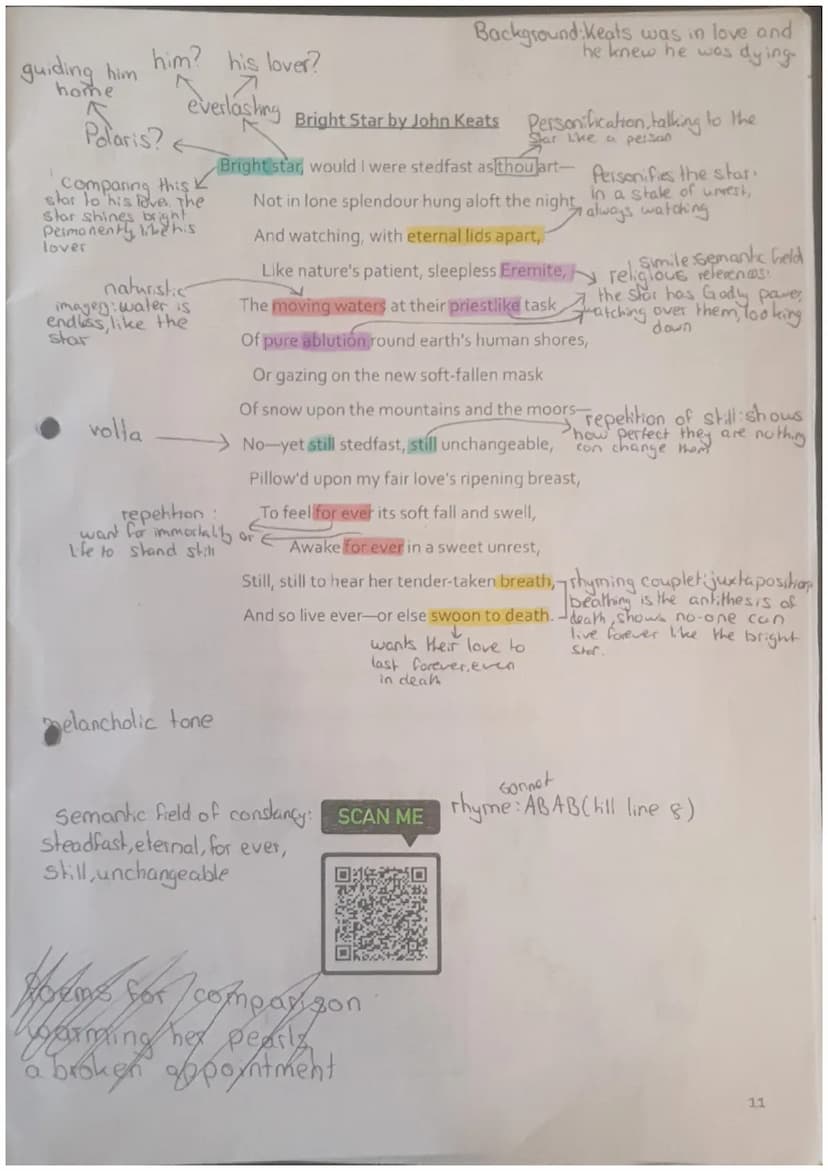 Background:Keats was in love and
he knew he was dying.
guiding him
home
him?
his lover?
everlasting
Polaris?
Bright Star by John Keats
Personification, talking to the
star like a person
Bright star, would I were stedfast as thou art—
Comparing this
star to his love. The
star shines bright
permanently like his
lover
Personifies the star:
in a state of unrest,
always watching
Not in lone splendour hung aloft the night
And watching, with eternal lids apart,
Like nature's patient, sleepless Eremite,
simile:semantic field
religious references:
the star has Godly power,
watching over them, looking
down
naturistic
imagery: water is
endless, like the
star
The moving waters at their priestlike task
Of pure ablution round earth's human shores,
Or gazing on the new soft-fallen mask
Of snow upon the mountains and the moors—
repetition of still:shows
how perfect they are nothing
can change them
volta
No—yet still stedfast, still unchangeable,
Pillow'd upon my fair love's ripening breast,
To feel for ever its soft fall and swell,
repetition :
want for immortality or
life to stand still
Awake for ever in a sweet unrest,
Still, still to hear her tender-taken breath,
And so live ever—or else swoon to death.
rhyming couplet:juxtaposition
breathing is the antithesis of
death, shows no-one can
live forever like the bright
star.
wants their love to
last forever, even
in death
melancholic tone
sonnet
rhyme: ABAB(till line 8)
Semantic field of constancy:
steadfast, eternal, for ever,
still, unchangeable
SCAN ME
Poems for comparison
warming her pearls
a broken appointment
11